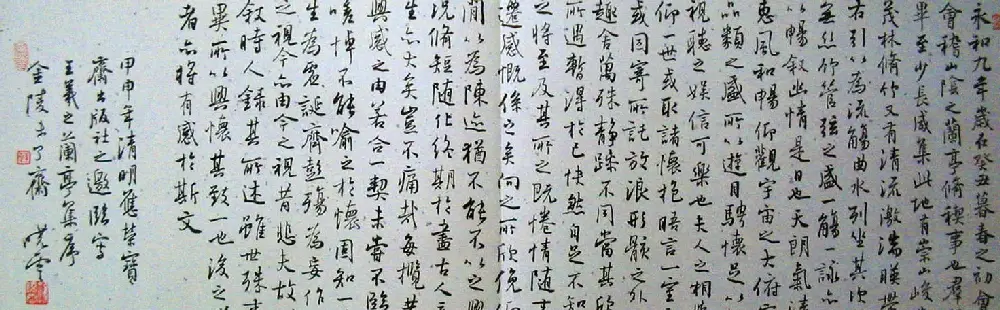 永和九年歲在癸丑暮春之初會
會稽山陰之蘭亭脩禊事也羣
畢至少長咸集此地有崇山峻
茂林脩竹又有清流激湍暎帶
右引以為流觴曲水列坐其次
無絲竹管弦之盛一觴一詠亦
以暢叙幽情是日也天朗氣清
惠風和暢仰觀宇宙之大俯察
品類之盛所以遊目騁懷足以
視聽之娛信可樂也夫人之相與
仰一世或取諸懷抱晤言一室
或因寄所託放浪形骸之外
趣舍萬殊靜躁不同當其欣
所遇暫得於己快然自足不知
之將至及其所之既惓情隨事
遷感慨係之矣向之所欣俛仰
間以為陳迹猶不能不以之興
況脩短隨化終期於盡古人云
生亦大矣豈不痛哉每攬昔
興感之由若合一契未嘗不臨
嗟悼不能喻之於懷固知一
生為虛誕齊彭殤為妄作
之視今亦由今之視昔悲夫故
叙時人錄其所述雖世殊事
異所以興懷其致一也後之
者亦將有感於斯文
甲申年清明應榮寶
齋出版社之邀臨寫
王羲之蘭亭集序
金陵去了齋